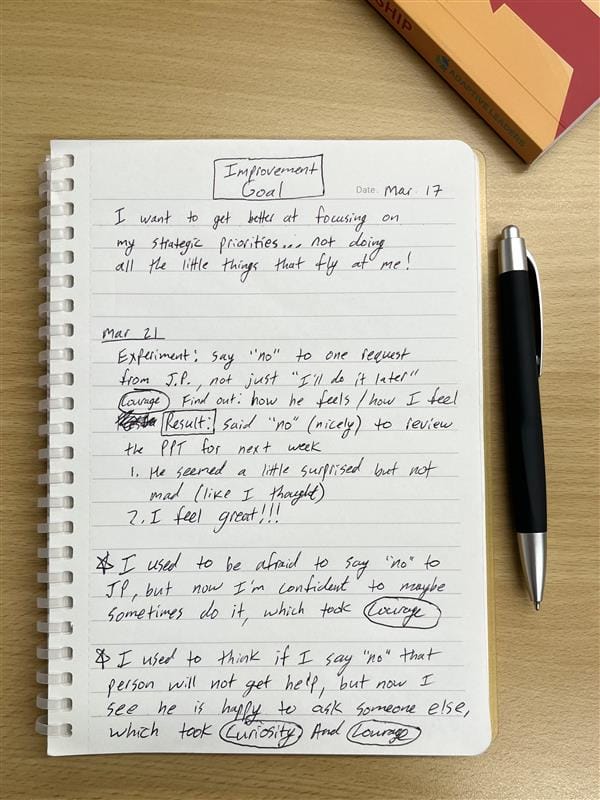 SHIP
ADAPTIVE LEADERS
Improvement
Goal
Date. Mar. 17
I want to get better at focusing on
my strategic priorities... not doing
all the little things that fly at me!
Mar 21
Experiment: say "no" to one request
from J.P., not just "I'll do it later"
Courage Find out: how he feels / how I feel
Result: said "no" (nicely) to review
the PPT for next week
1. He seemed a little surprised but not
mad (like I thought)
2. I feel great!!!
I used to be afraid to say "no" to
JP, but now I'm confident to maybe
sometimes do it, which took Courage
I used to think if I say "no" that
person will not get help, but now I
see he is happy to ask someone else,
which took Curiosity And Courage